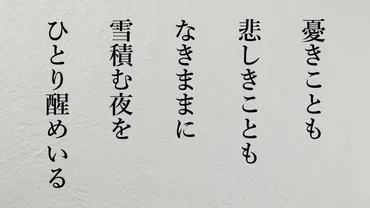 憂きことも
悲しきことも
なきままに
雪積む夜を
ひとり醒めいる